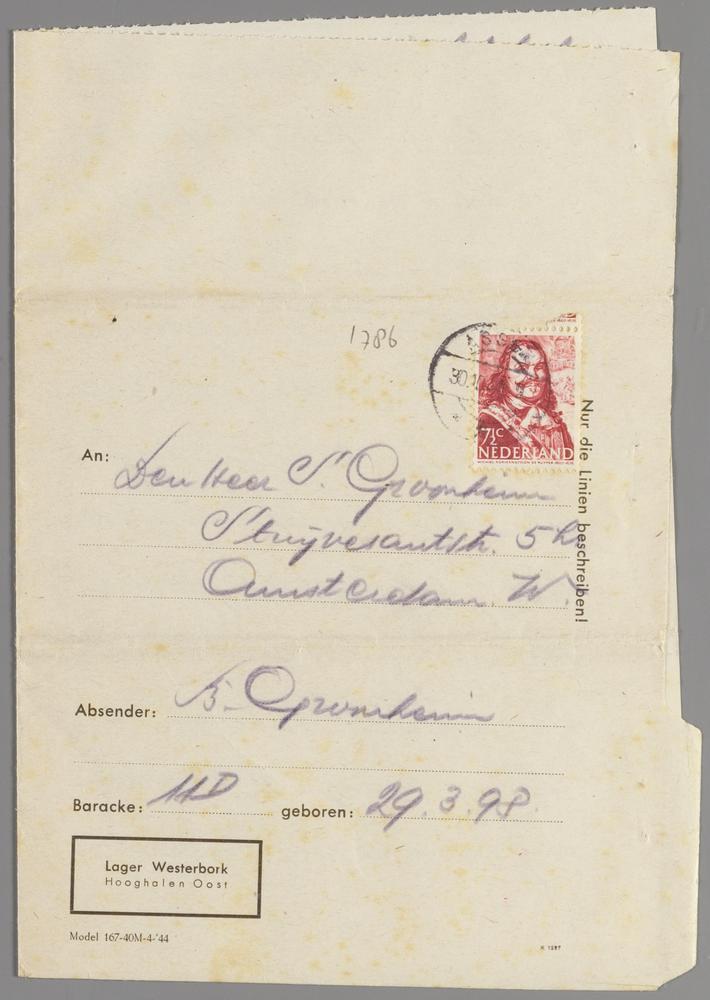 1786
30.10
7½c
NEDERLAND
Nur die Linien beschreiben!
An: Den Heer S. Groonheim
Stuyvesantstr. 5 hs
Amsterdam. W.
Absender: B. Groonheim
Baracke: 11D geboren: 29.3.98.
Lager Westerbork
Hooghalen Oost
Model 167-40M-4-'44
K 1287